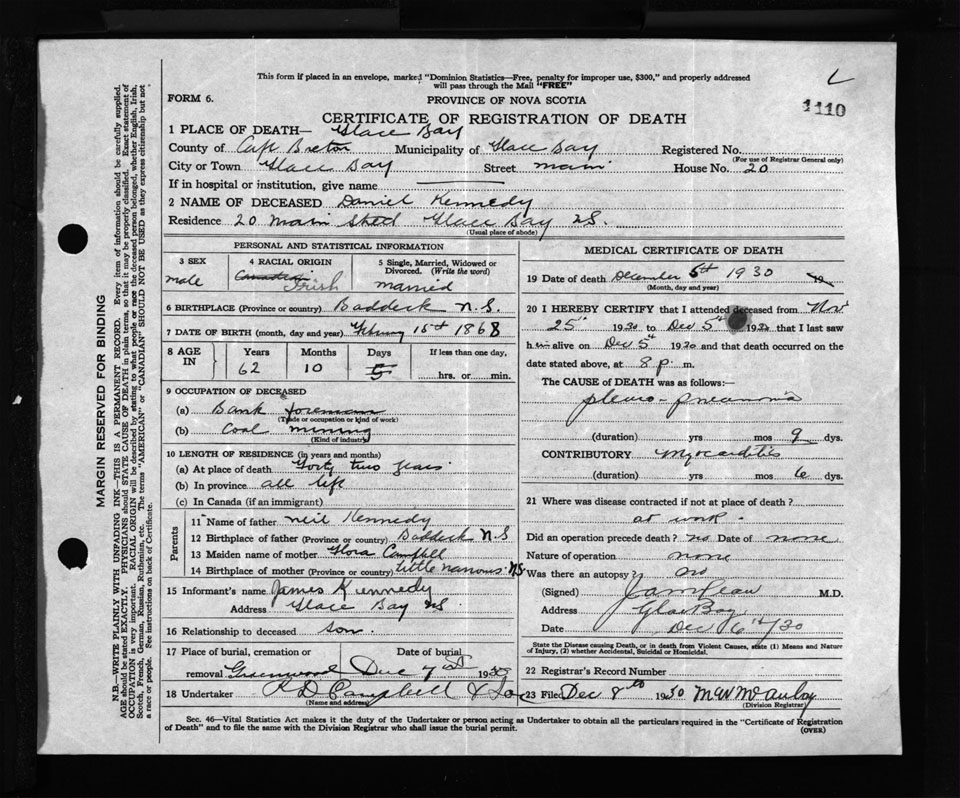 This form if placed in an envelope, marked "Dominion Statistics—Free, penalty for improper use, $300," and properly addressed
will pass through the Mail "FREE"
FORM 6.
PROVINCE OF NOVA SCOTIA
1110
CERTIFICATE OF REGISTRATION OF DEATH
1 PLACE OF DEATH— Glace Bay
County of Cape Breton Municipality of Glace Bay Registered No.
(For use of Registrar General only)
City or Town Glace Bay Street main House No. 20
If in hospital or institution, give name
2 NAME OF DECEASED Daniel Kennedy
Residence 20 Main Street Glace Bay NS.
(Usual place of abode)
PERSONAL AND STATISTICAL INFORMATION
3 SEX
male
4 RACIAL ORIGIN
Canadian Irish
5 Single, Married, Widowed or Divorced. (Write the word)
married
6 BIRTHPLACE (Province or country) Baddeck N.S.
7 DATE OF BIRTH (month, day and year) February 15st 1868
8 AGE IN Years Months Days If less than one day,
62 10 5 hrs. or min.
9 OCCUPATION OF DECEASED
(a) Bank foreman
(Trade or occupation or kind of work)
(b) Coal mining
(Kind of industry)
10 LENGTH OF RESIDENCE (in years and months)
(a) At place of death forty two years
(b) In province all life
(c) In Canada (if an immigrant)
Parents
11 Name of father Neil Kennedy
12 Birthplace of father (Province or country) Baddeck N.S
13 Maiden name of mother Flora Campbell
14 Birthplace of mother (Province or country) Little narrows NS
15 Informant's name James Kennedy
Address Glace Bay NS
16 Relationship to deceased son.
17 Place of burial, cremation or removal Date of burial
Greenwood Dec 7 1930
18 Undertaker Campbell & Son
(Name and address)
MEDICAL CERTIFICATE OF DEATH
19 Date of death December 5th 1930 19
(Month, day and year)
20 I HEREBY CERTIFY that I attended deceased from Nov
25th 1930 to Dec 5th 1930 that I last saw
him alive on Dec 5th 1930 and that death occurred on the
date stated above, at 8 p. m.
The CAUSE of DEATH was as follows:—
pleuro-pneumonia
(duration) yrs mos 9 dys.
CONTRIBUTORY Myocarditis
(duration) yrs mos 6 dys.
21 Where was disease contracted if not at place of death?
at work.
Did an operation precede death? no Date of none
Nature of operation none
Was there an autopsy? no
(Signed) M.D.
Address Glace Bay
Date Dec 6th/30
State the Disease causing Death, or in death from Violent Causes, state (1) Means and Nature of Injury, (2) whether Accidental, Suicidal or Homicidal.
22 Registrar's Record Number
23 Filed Dec 8th 1930
(Division Registrar)
Sec. 46—Vital Statistics Act makes it the duty of the Undertaker or person acting as Undertaker to obtain all the particulars required in the "Certificate of Registration
of Death" and to file the same with the Division Registrar who shall issue the burial permit.
(OVER)
MARGIN RESERVED FOR BINDING
N.B.—WRITE PLAINLY WITH UNFADING INK—THIS IS A PERMANENT RECORD. Every item of information should be carefully supplied.
AGE should be stated EXACTLY. PHYSICIANS should STATE CAUSE OF DEATH in plain terms, so that it may be properly classified. Exact statement of
OCCUPATION is very important. RACIAL ORIGIN will be described by stating to what people or race the deceased person belonged, whether English, Irish,
Scotch, French, German, Russian, Ruthenian, etc. The terms "AMERICAN" or "CANADIAN" SHOULD NOT BE USED as they express citizenship but not
a race or people. See instructions on back of Certificate.